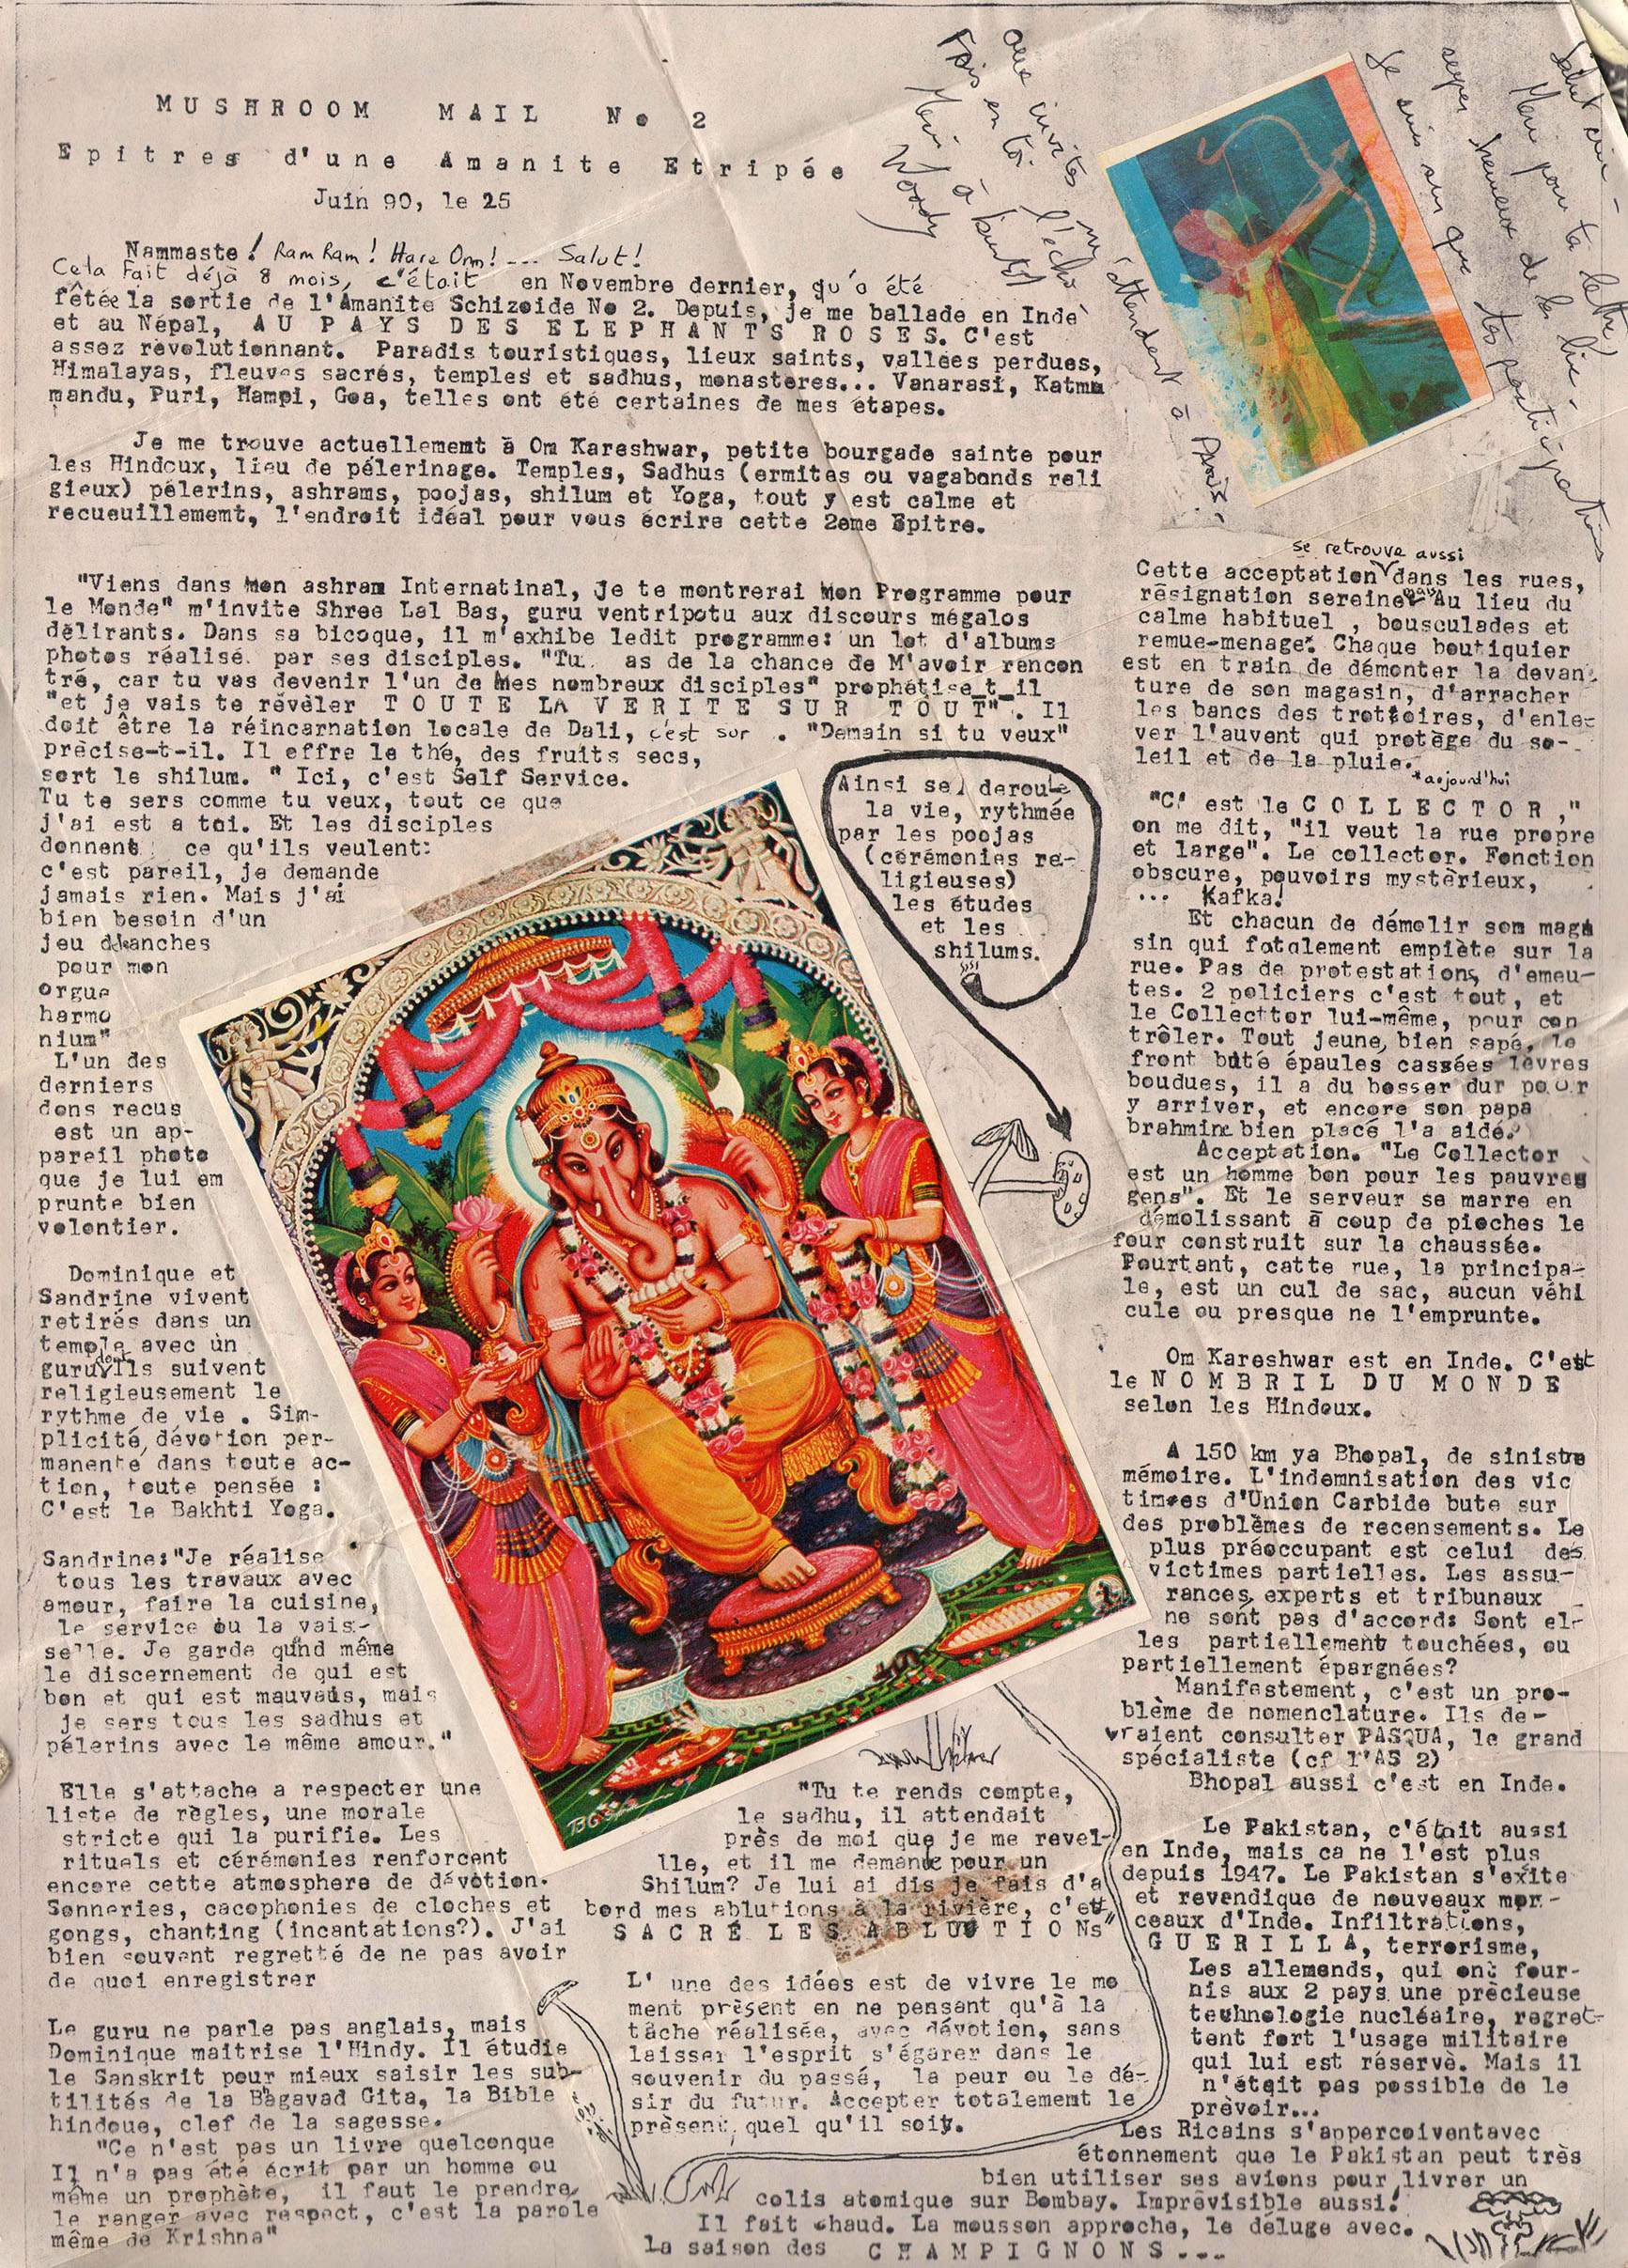 MUSHROOM MAIL No 2
Epitres d'une Amanite Etripée
Juin 90, le 25
Nammaste! Ram Ram! Hare Om! ... Salut!
Cela fait déjà 8 mois, c'était en Novembre dernier, qu'a été
fêtée la sortie de l'Amanite Schizoide No 2. Depuis, je me ballade en Inde
et au Népal, AU PAYS DES ELEPHANTS ROSES. C'est
assez révolutionnant. Paradis touristiques, lieux saints, vallées perdues,
Himalayas, fleuves sacrés, temples et sadhus, monasteres... Vanarasi, Katma
mandu, Puri, Hampi, Goa, telles ont été certaines de mes étapes.
Je me trouve actuellement à Om Kareshwar, petite bourgade sainte pour
les Hindoux, lieu de pélerinage. Temples, Sadhus (ermites ou vagabonds reli
gieux) pélerins, ashrams, poojas, shilum et Yoga, tout y est calme et
recueuillement, l'endroit idéal pour vous écrire cette 2eme Epitre.
"Viens dans Mon ashram Internatinal, je te montrerai Mon Programme pour
le Monde" m'invite Shree Lal Bas, guru ventripotu aux discours mégalos
délirants. Dans sa bicoque, il m'exhibe ledit programme: un lot d'albums
photos réalisé par ses disciples. "Tu as de la chance de M'avoir rencon
tré, car tu vas devenir l'un de Mes nombreux disciples" prophétise_t_il
"et je vais te révéler TOUTE LA VERITE SUR TOUT". Il
doit être la réincarnation locale de Dali, c'est sur . "Demain si tu veux"
précise-t-il. Il offre le thé, des fruits secs,
sort le shilum. " Ici, c'est Self Service.
Tu te sers comme tu veux, tout ce que
j'ai est a toi. Et les disciples
donnent ce qu'ils veulent:
c'est pareil, je demande
jamais rien. Mais j'ai
bien besoin d'un
jeu d'anches
pour mon
orgue
harmo
nium"
L'un des
derniers
dons recus
est un ap-
pareil photo
que je lui em
prunte bien
volontier.
Dominique et
Sandrine vivent
retirés dans un
temple avec un
guru dont ils suivent
religieusement le
rythme de vie . Sim-
plicité, dévotion per-
manente dans toute ac-
tion, toute pensée :
C'est le Bakhti Yoga.
Sandrine:"Je réalise
tous les travaux avec
amour, faire la cuisine,
le service ou la vais-
selle. Je garde qund même
le discernement de qui est
bon et qui est mauvais, mais
je sers tous les sadhus et
pélerins avec le même amour."
Elle s'attache a respecter une
liste de règles, une morale
stricte qui la purifie. Les
rituels et cérémonies renforcent
encore cette atmosphere de dévotion.
Sonneries, cacophonies de cloches et
gongs, chanting (incantations?). J'ai
bien souvent regretté de ne pas avoir
de quoi enregistrer
Le guru ne parle pas anglais, mais
Dominique maitrise l'Hindy. Il étudie
le Sanskrit pour mieux saisir les sub-
tilités de la Bagavad Gita, la Bible
hindoue, clef de la sagesse.
"Ce n'est pas un livre quelconque
Il n'a pas été écrit par un homme ou
même un prophète, il faut le prendre,
le ranger avec respect, c'est la parole
même de Krishna"
Ainsi se deroule
la vie, rythmée
par les poojas
(cérémonies re-
ligieuses)
les études
et les
shilums.
"Tu te rends compte,
le sadhu, il attendait
près de moi que je me revei-
lle, et il me demande pour un
Shilum? Je lui ai dis je fais d'a
bord mes ablutions à la rivière, c'est
SACRÉ LES ABLUTIONs"
L' une des idées est de vivre le mo
ment présent en ne pensant qu'à la
tâche réalisée, avec dévotion, sans
laisser l'esprit s'égarer dans le
souvenir du passé, la peur ou le dé-
sir du futur. Accepter totalement le
présent, quel qu'il soit.
Salut
Merci pour ta lettre
super heureux de la lire
Je suis sur que tes participations
m'attendent à Paris.
aux invités
Fais en toi l'écho
Merci à bientôt
Woody
Cette acceptation se retrouve aussi dans les rues,
résignation sereine. Au lieu du
calme habituel , bousculades et
remue-menage*. Chaque boutiquier
est en train de démonter la devan-
ture de son magasin, d'arracher
les bancs des trottoires, d'enle-
ver l'auvent qui protège du so-
leil et de la pluie.
*aujourd'hui
"C' est le COLLECTOR ,"
on me dit, "il veut la rue propre
et large". Le collector. Fonction
obscure, pouvoirs mystèrieux,
... Kafka!
Et chacun de démolir son maga
sin qui fatalement empiète sur la
rue. Pas de protestations, d'emeu-
tes. 2 policiers c'est tout, et
le Collecttor lui-même, pour con
trôler. Tout jeune, bien sapé, le
front buté épaules cassées lèvres
boudues, il a du bosser dur pour
y arriver, et encore son papa
brahmine bien placé l'a aidé.
Acceptation. "Le Collector
est un homme bon pour les pauvres
gens". Et le serveur se marre en
démolissant à coup de pioches le
four construit sur la chaussée.
Pourtant, catte rue, la principa-
le, est un cul de sac, aucun véhi
cule ou presque ne l'emprunte.
Om Kareshwar est en Inde. C'est
le NOMBRIL DU MONDE
selon les Hindoux.
A 150 km ya Bhopal, de sinistre
mémoire. L'indemnisation des vic
times d'Union Carbide bute sur
des problèmes de recensements. Le
plus préoccupant est celui des
victimes partielles. Les assu-
rances, experts et tribunaux
ne sont pas d'accord: Sont el-
les partiellement touchées, ou
partiellement épargnées?
Manifestement, c'est un pro-
blème de nomenclature. Ils de-
vraient consulter PASQUA, le grand
spécialiste (cf l'AS 2)
Bhopal aussi c'est en Inde.
Le Pakistan, c'était aussi
en Inde, mais ca ne l'est plus
depuis 1947. Le Pakistan s'exite
et revendique de nouveaux mor-
ceaux d'Inde. Infiltrations,
GUERILLA, terrorisme,
Les allemands, qui ont four-
nis aux 2 pays une précieuse
technologie nucléaire, regret-
tent fort l'usage militaire
qui lui est réservé. Mais il
n'était pas possible de le
prévoir...
Les Ricains s'appercoiventavec
étonnement que le Pakistan peut très
bien utiliser ses avions pour livrer un
colis atomique sur Bombay. Imprévisible aussi!
Il fait chaud. La mousson approche, le déluge avec.
la saison des CHAMPIGNONS...